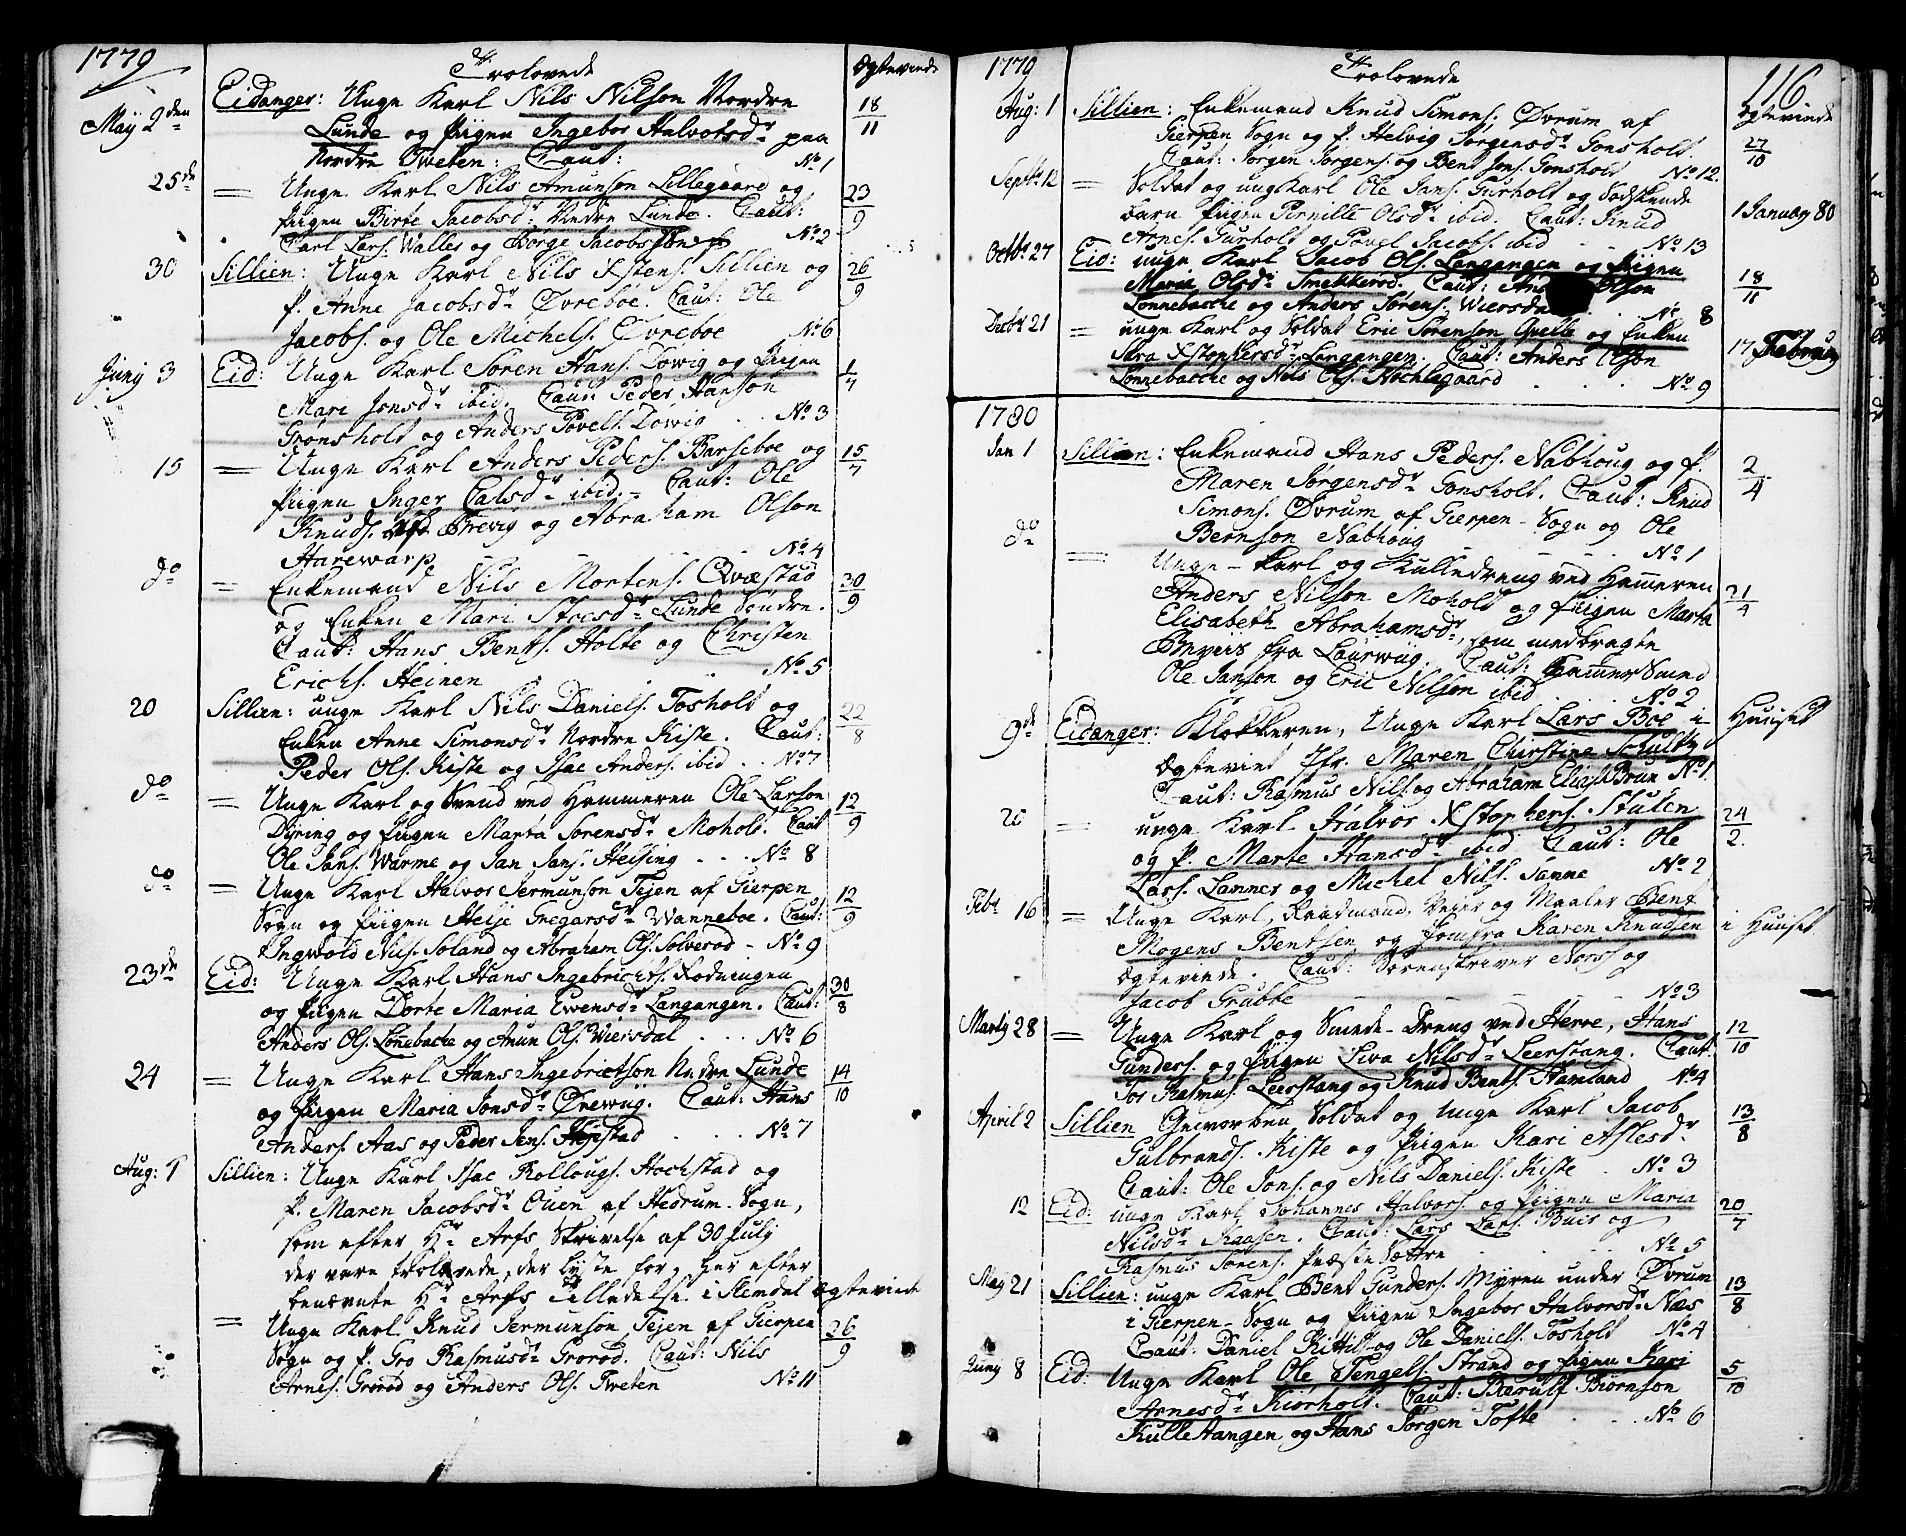 1779
Trolovede
Ægteviede
May 2den
Eidanger: Unge Karl Nils Nilson Nordre
18/11
Lunde og Piigen Ingebor Halvorsdr paa
Nordre Tveten: Caut: No 1
25de = Unge Karl Nils Amunson Lillegaard og
23/9
Piigen Birte Jacobsdr Nedre Lunde. Caut:
Carl Lars. Walles og Børge Jacobs. No 2
30 Sillien: Unge Karl Nils Xstens. Sillien og
26/9
P. Anne Jacobsdr Øvreboe. Caut: Ole
Jacobs. og Ole Michels. Øvreboe No 6
Juny 3 Eid: Unge Karl Søren Hans. Dowig og Piigen
1/7
Mari Jonsdr ibid. Caut: Peder Hanson
Grønsholt og Anders Povels. Dowig No 3
15 = Unge Karl Anders Peders. Barseboe og
15/7
Piigen Inger Calsdr ibid. = Caut: Ole
Knuds. af Brevig og Abraham Olson
Harewarp No 4
do = Enkemand Nils Mortens. Qvæstad
30/9
og Enken Mari Sdr Lunde Søndre.
Caut: Hans Bents. Holte og Christen
Erichs. Heinen No 5
20 Sillien: unge Karl Nils Daniels. Tosholt og
22/8
Enken Anne Simonsdr Nordre Kiste. Caut:
Peder Ols. Kiste og Isac Anders. ibid .. No 7
do = Unge Karl og Svend ved Hammeren Ole Larson
12/9
Dyring og Piigen Marta Sørensdr Moholt. Caut
Ole Jans. Warme og Jan Jans. Heising ... No 8
do = Unge Karl Halvor Jermunson Tejen af Gierpen
12/9
Sogn og Piigen Helje Gregarsdr Wanneboe. Caut:
Ingwold Nils. Soland og Abraham Ols. Solverød - No 9
23de Eid: Unge Karl Hans Ingebrichts. Rødningen
30/8
og Piigen Dorte Maria Ewensdr Langangen. Caut:
Anders Ols. Lønebache og Anun Ols. Wiersdal ... No 6
24 = Unge Karl Hans Ingebrictson Nedre Lunde
14/10
og Piigen Maria Jonsdr Ørewiig. Caut: Hans
Anders. Aas og Peder Jens. Heistad .... No 7
Aug: 1 Sillien: Unge Karl Isac Rollougs. Hochstad og
P. Maren Jacobsdr Ouen af Hedrum Sogn,
som efter Hr Arfs Skrivelse af 30 July
der vare trolovede, der lyste for, her efter
benævnte Hr Arfs Tilladelse i Slemdal Ægteviede
= Unge Karl Knud Jermunson Tejen af Gierpen
26/9
Sogn og P. Gro Rasmusdr Grorød. Caut: Nils
Arnes. Grorød og Anders Ols. Tveten No 11
1779
Trolovede
116
Ægteviede
Aug: 1 Sillien: Enkemand Knud Simons. Øvrum af
27/10
Gierpen Sogn og P. Helvig Jørgensdr Gonsholt.
Caut: Jørgen Jørgens. og Bent Jons. Gonsholt No 12.
Septr 12 = Soldat og ung Karl Ole Jans. Gurholt og Sødskende
1 January 80
barn Piigen Pernille Olsdr ibid. Caut: Knud
Arnes. Gurholt og Povel Jacobs. ibid No 13
Octbr 27 Eid: unge Karl Jacob Ols. Langangen og Piigen
18/11
Maria Olsdr Smekkerød. Caut: Olson
Lønnebacke og Anders Sørens. Wiersda No 8
Decbr 21 = unge Karl og Soldat Eric Sørenson Qvelle og Enken
17 February
Sara Xstophersdr Langangen. Caut: Anders Olson
Lønnebacke og Nils Ols. Nøchlegaard ..... No 9
1780
Jan 1 Sillien: Enkemand Hans Peders. Nabhoug og P.
2/4
Maren Jørgensdr Gonsholt. Caut: Knud
Simons. Øvrum af Gierpen Sogn og Ole
Bernson Nabhoug No 1
do = Unge Karl og Kulledreng ved Hammeren
21/4
Anders Nilson Moholt og Piigen Marta
Elisabeth Abrahamsdr, som medbragte
Beviis fra Laurwiig. Caut: Hammer Smed
Ole Janson og Eric Nilson ibid ... No 2
9de Eidanger: Klokkeren, Unge Karl Lars Boe i
Huuset
Ægteviet Jfr. Maren Christine Schultz
Caut: Rasmus Nils. og Abraham Elias Brun No 1
20 = unge Karl Halvor Xstophers. Stulen
24/2.
og P. Marte Hansdr ibid Caut: Ole
Lars. Lanner og Michel Nils. Tanne No 2
Febr 16 = Unge Karl, Raadmand, Veier og Maaler Bent
i Huuset
Mogens Bentsen og Jomfru Karen Knudsen
Ægteviede. Caut: Sorenskriver Norss og
Jacob Grubbe No 3
Marty 28 = Unge Karl og Smede-Dreng ved Herre, Hans
12/10
Gunders. og Piigen Siva Nilsdr Leerstang. Caut.
Tor Rasmus. Leerstang og Knud Bents. Hamland No 4
April 2 Sillien Gevorben Soldat og Unge Karl Jacob
13/8
Gulbrands. Kiste og Piigen Kari Aslesdr
Caut: Ole Jons. og Nils Daniels. Kiste . No 3
12 Eid: unge Karl Johannes Halvors. og Piigen Maria
20/7
Nilsdr Kaasen. Caut: Lars Lars. Buis og
Rasmus Sørens. Præste Sættre ..... No 5
May 21 Sillien: unge Karl Bent Gunders. Myren under Øvrum
13/8
i Gierpen Sogn og Piigen Ingebor Halvorsdr Næs
Caut: Daniel Kittils. og Ole Daniels. Tosholt No 4
Juny 8 Eid: Unge Karl Ole Tengels. Strand og Piigen Kari
5/10
Arnesdr Kiørholt. Caut: Berulf Biørnson
Kulletangen og Hans Jørgen Tofte ... No 6